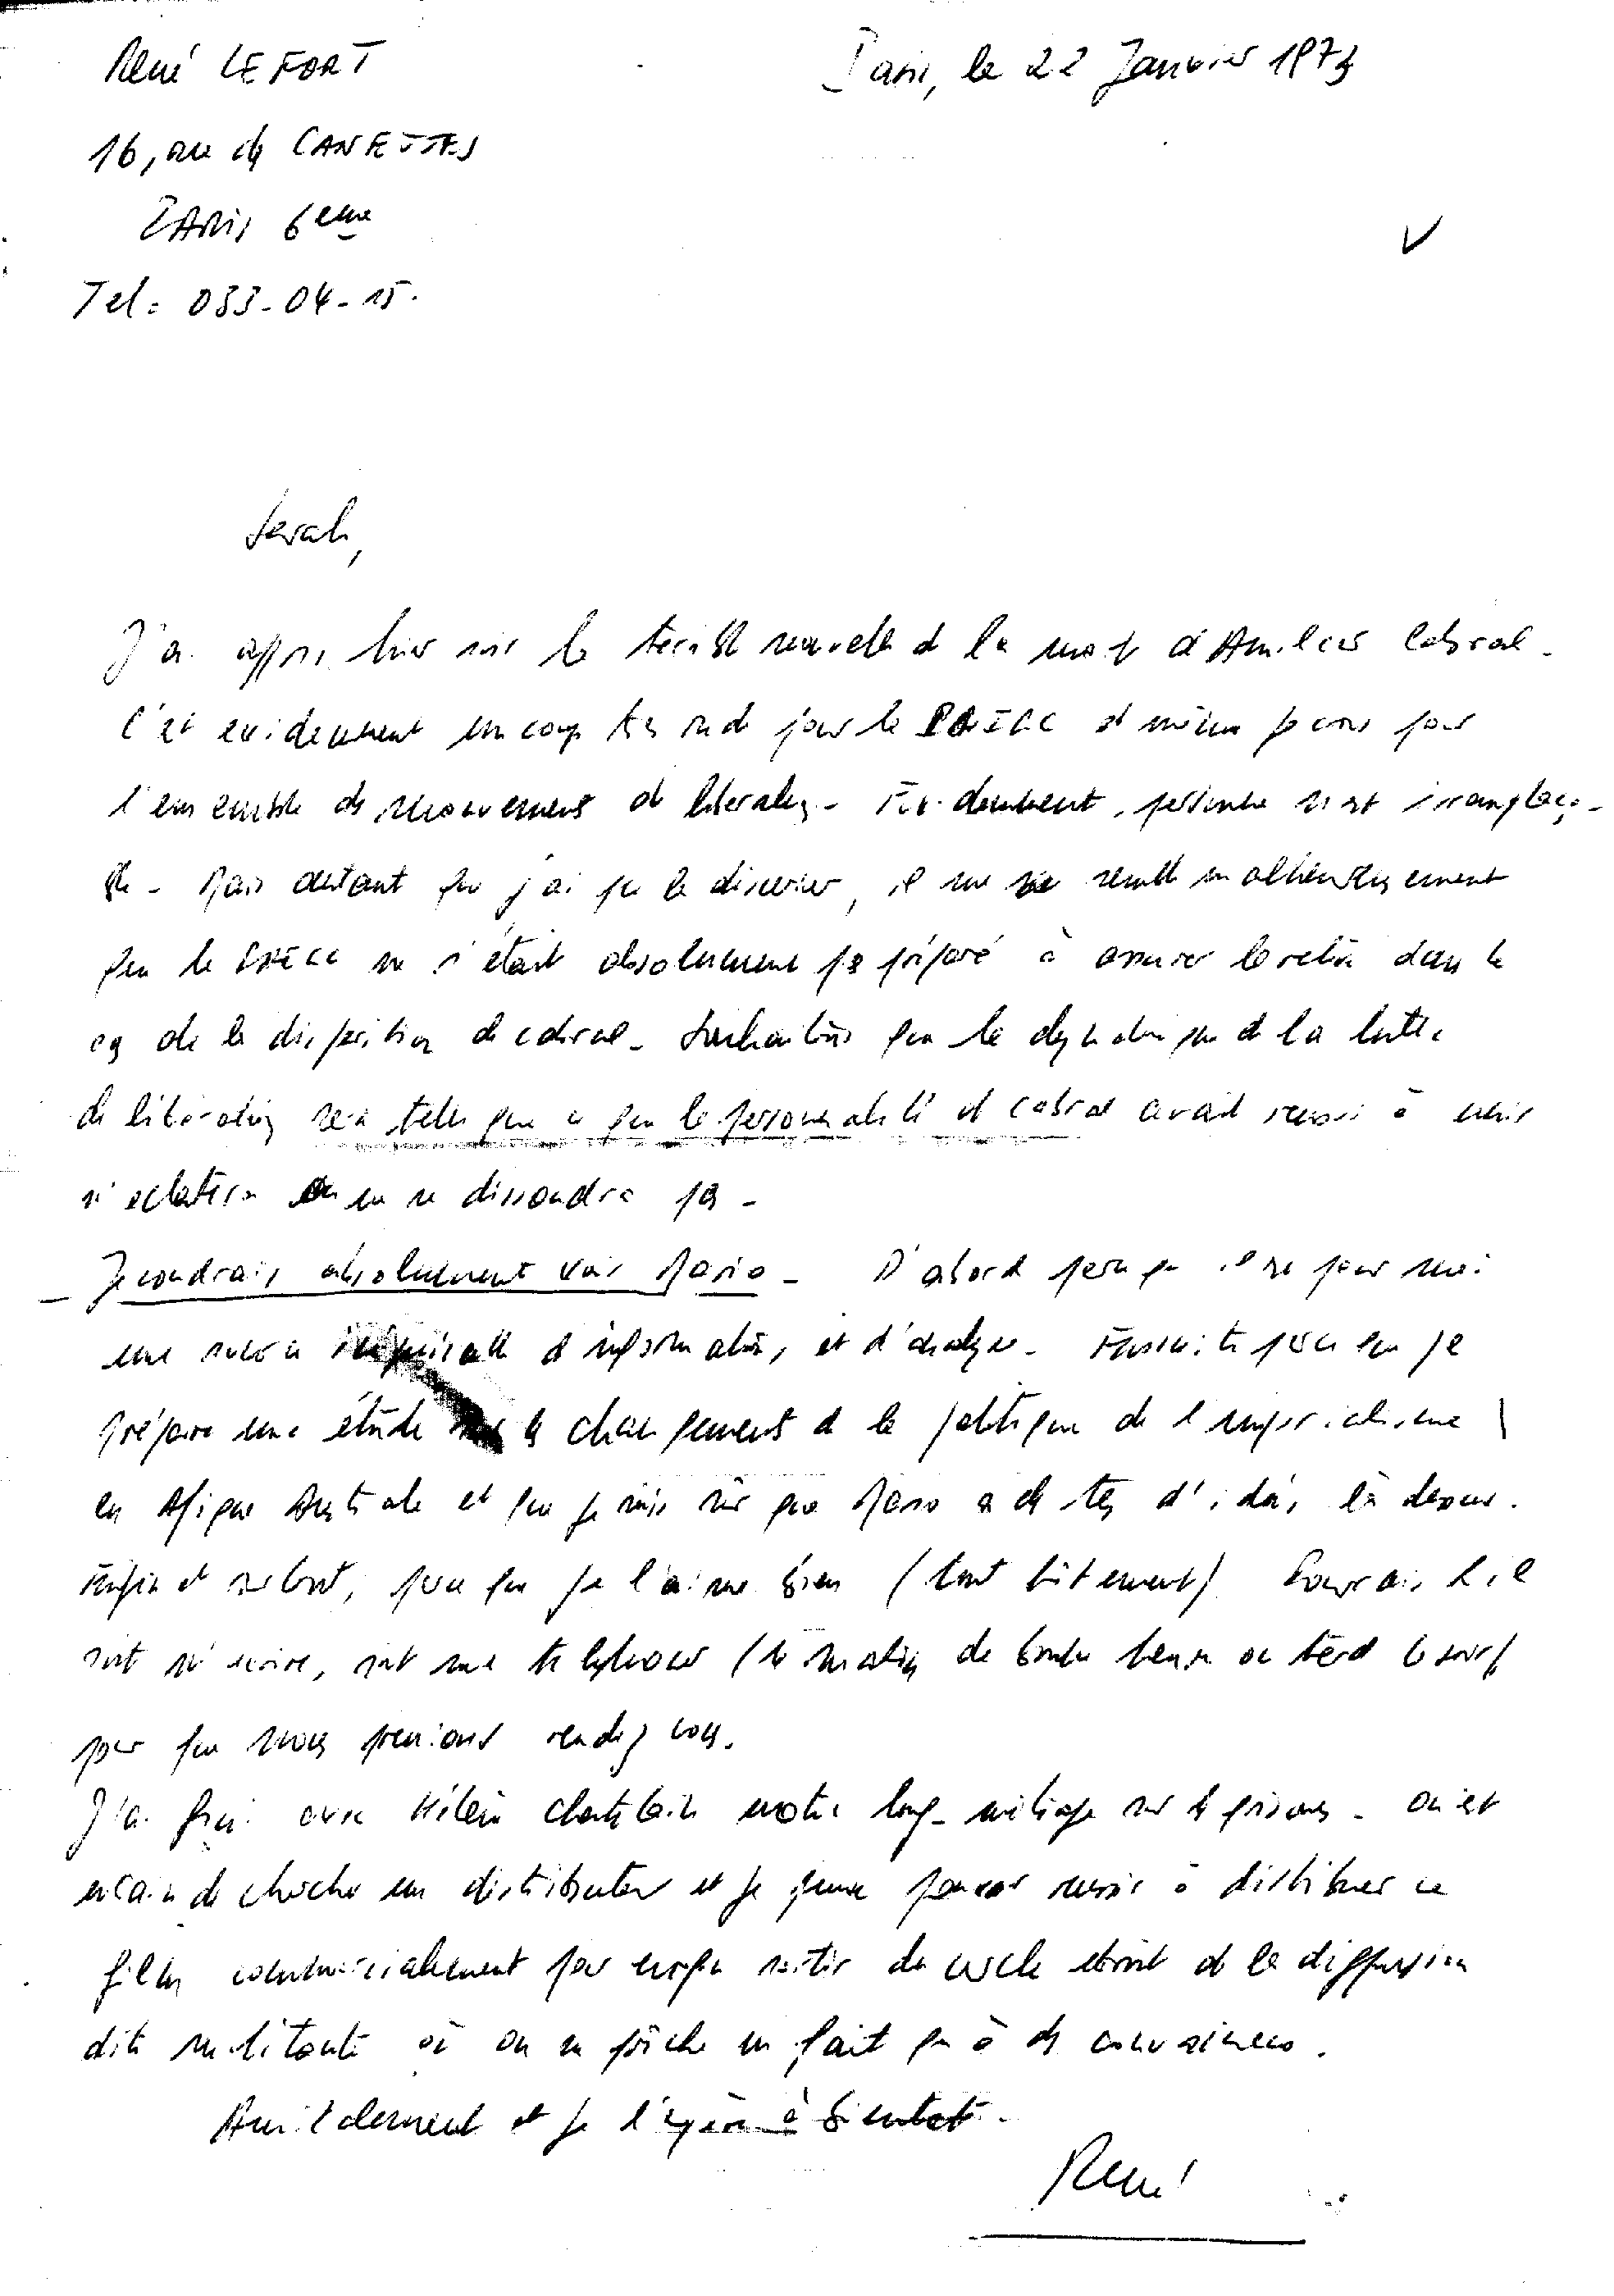 René LEFORT
Paris, le 22 Janvier 1973
16, rue des CANETTES
PARIS 6eme
Tel: 033-04-15.
Sarah,
J'ai appris hier soir la terrible nouvelle de la mort d'Amilcar Cabral.
C'est evidemment un coup très rude pour le PAIGC et même je crois pour
l'ensemble des mouvements de liberation. Evidemment, personne n'est irremplaça-
ble. Mais autant que j'ai pu le discerner, il me semble malheureusement
que le PAIGC ne s'était absolument pas préparé à assurer la relève dans le
cas de la disparition de Cabral. Souhaitons que la dynamique de la lutte
de libération sera telle que ce que la personnalité de Cabral avait reussi à unir
n'eclatera ou ne se dissoudra pas.
Je voudrais absolument voir Mario. D'abord parce qu'il est pour moi
une source inépuisable d'informations et d'analyse. Ensuite parce que je
prépare une étude sur les changements de la politique de l'imperialisme
en Afrique Australe et que je suis sûr que Mario a des tas d'idées là dessus.
Enfin et surtout, parce que je l'aime bien (tout bêtement). Pourrais t-il
soit m'ecrire, soit me telephoner (le matin de bonne heure ou tard le soir)
pour que nous prenions rendez vous.
J'ai fini avec Hélène Chatelain notre long-métrage sur les prisons. On est
en train de chercher un distributeur et je pense pouvoir reussir à distribuer ce
film commercialement pour enfin sortir du cercle etroit de la diffusion
dite militante où on ne prêche en fait qu'à des convaincus.
Amicalement et je l'espère à bientot.
René